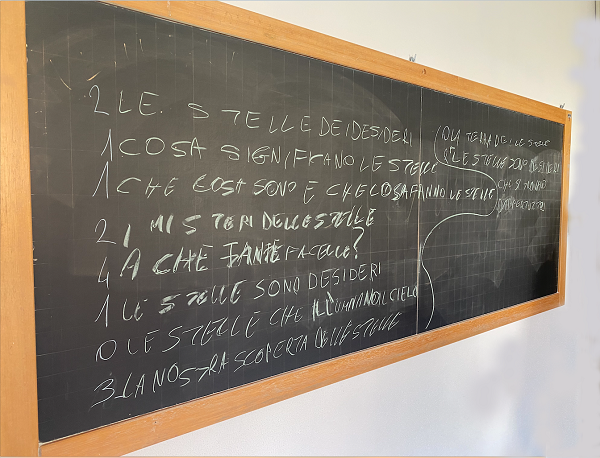 2 LE. STELLE DEI DESIDERI
1 COSA SIGNIFICANO LE STELLE
1 CHE COSA SONO E CHE COSA FANNO LE STELLE
2 I MISTERI DELLE STELLE
4 A CHE FACELE?
1 LE STELLE SONO DESIDERI
0 LE STELLE CHE ILLUMINANO IL CIELO
3 LA NOSTRA SCOPERTA DELLE STELLE
0 LA TERRA DELLE STELLE
LE STELLE SONO DESIDERI
CHE SI